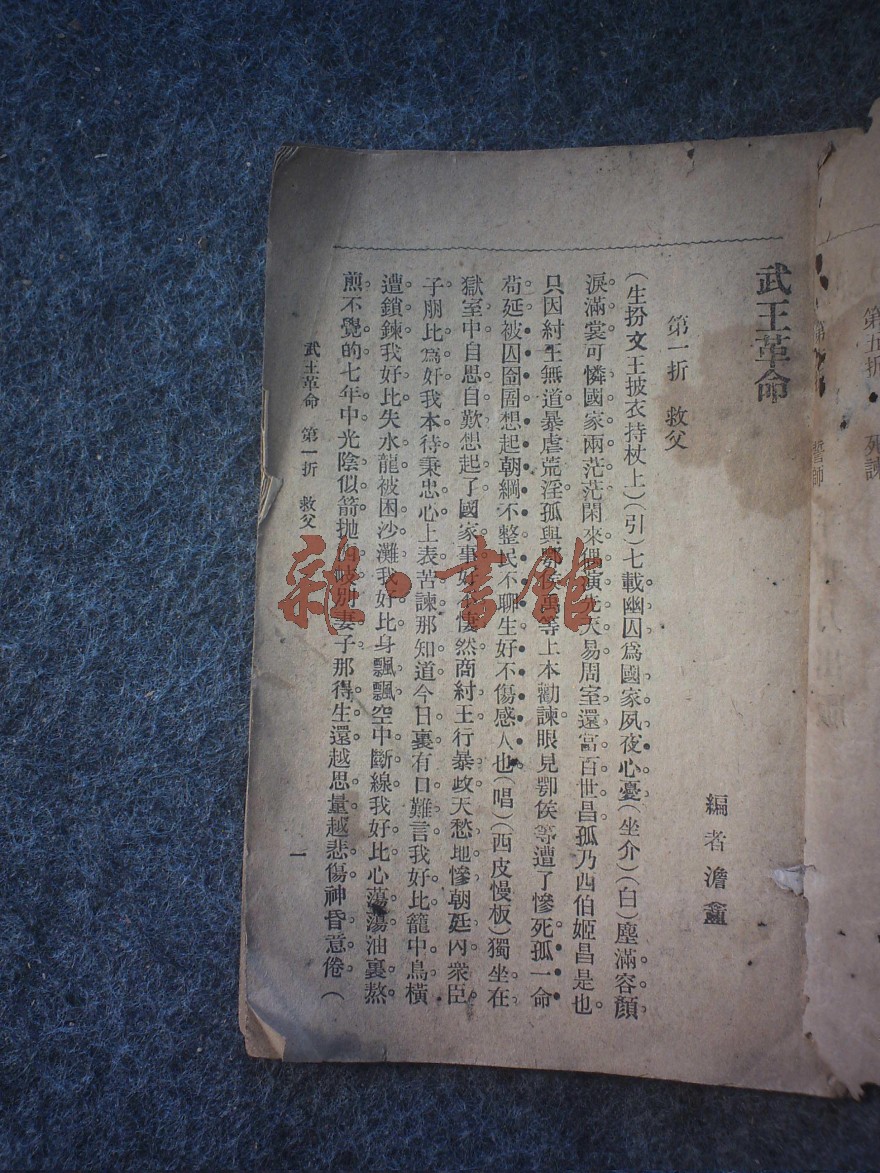 武王革命
編者 澹盦
第一折 救父
(生扮文王披衣持杖上)(引)七載幽囚爲國家夙夜心憂(坐介)(白)塵滿容顏
淚滿裳可憐國家兩茫茫閑來演先天易周室還當百世昌孤乃西伯姬昌是也
只因紂王無道暴虐荒淫孤與鄂侯禹等上本勸諫眼見鄂侯等遭了慘死孤一命
苟延被囚囹圄想起朝綱不整民不聊生好不傷感人也(唱)(西皮慢板)獨坐在
獄室中自思自歎想起了國家事好悽然商紂王行暴政天愁地慘朝廷內衆臣
子朋比爲奸我本待秉忠心上表苦諫那知道今日裏有口難言我好比籠中鳥橫
遭鎖鍊我好比失水龍被困沙灘我好比身飄飄空中斷線我好比心蕩蕩油裏熬
煎不覺的七年中光陰似箭拋西岐別妻子那得生還越思量越悲傷神昏意倦(
武王革命 第一折 救父
一
第五折 死諫
誓師
雜·書館